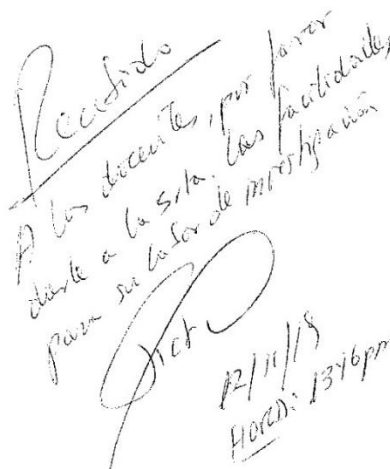 Recibido
A los docentes, por favor
darle a la Srta. las facilidades
para su labor de investigación
12/11/19
HORA: 1346pm